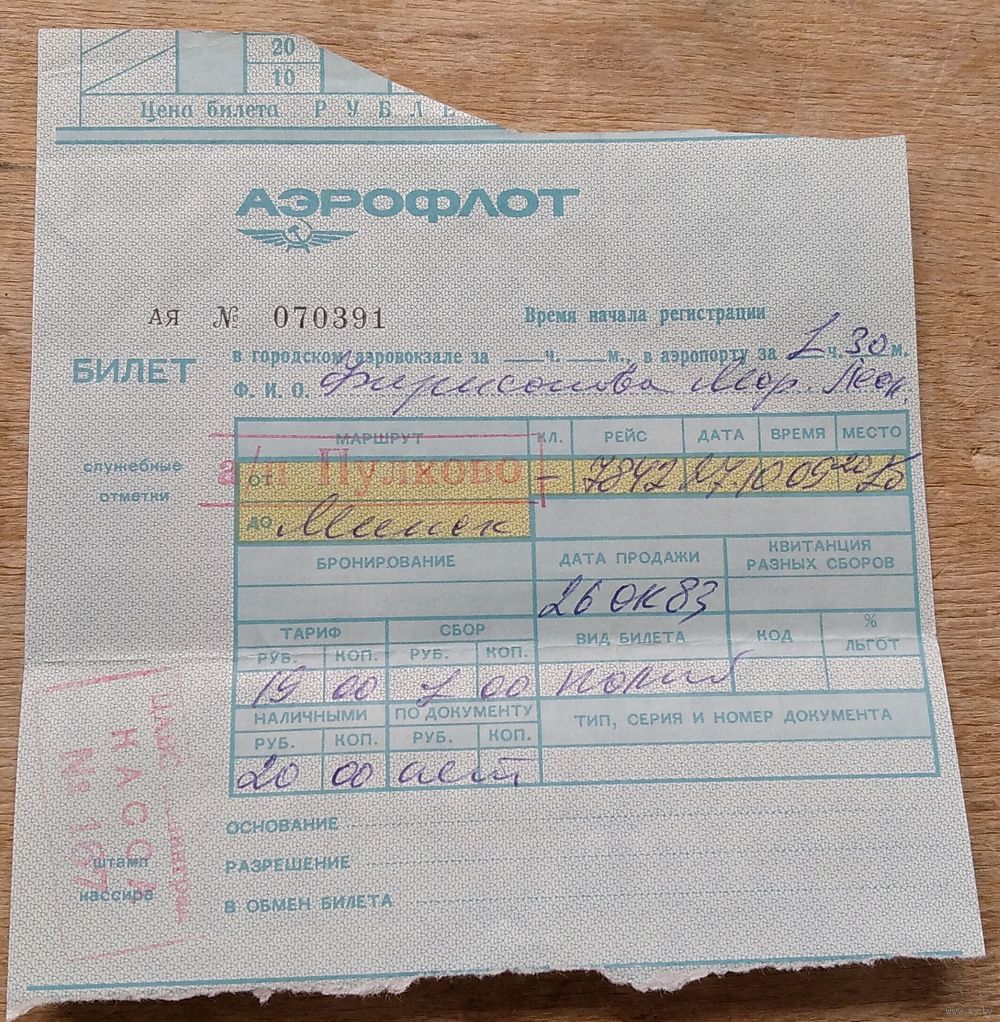 20
10
Цена билета РУБЛЕ
АЭРОФЛОТ
АЯ № 070391
Время начала регистрации
БИЛЕТ
в городском аэровокзале за ч. м., в аэропорту за 1 ч. 30 м.
Ф. И. О. Мар. Леон.
МАРШРУТ КЛ. РЕЙС ДАТА ВРЕМЯ МЕСТО
служебные отметки
ОТ а/п Пулково – 7842 27.10 09 20
ДО Минск
БРОНИРОВАНИЕ ДАТА ПРОДАЖИ КВИТАНЦИЯ РАЗНЫХ СБОРОВ
26 ОК 83
ТАРИФ СБОР ВИД БИЛЕТА КОД % ЛЬГОТ
РУБ. КОП. РУБ. КОП.
19 00 1 00
НАЛИЧНЫМИ ПО ДОКУМЕНТУ ТИП, СЕРИЯ И НОМЕР ДОКУМЕНТА
РУБ. КОП. РУБ. КОП.
20 00
ОСНОВАНИЕ
РАЗРЕШЕНИЕ
В ОБМЕН БИЛЕТА
штамп кассира
КАССА
№ 167
www.ay.by